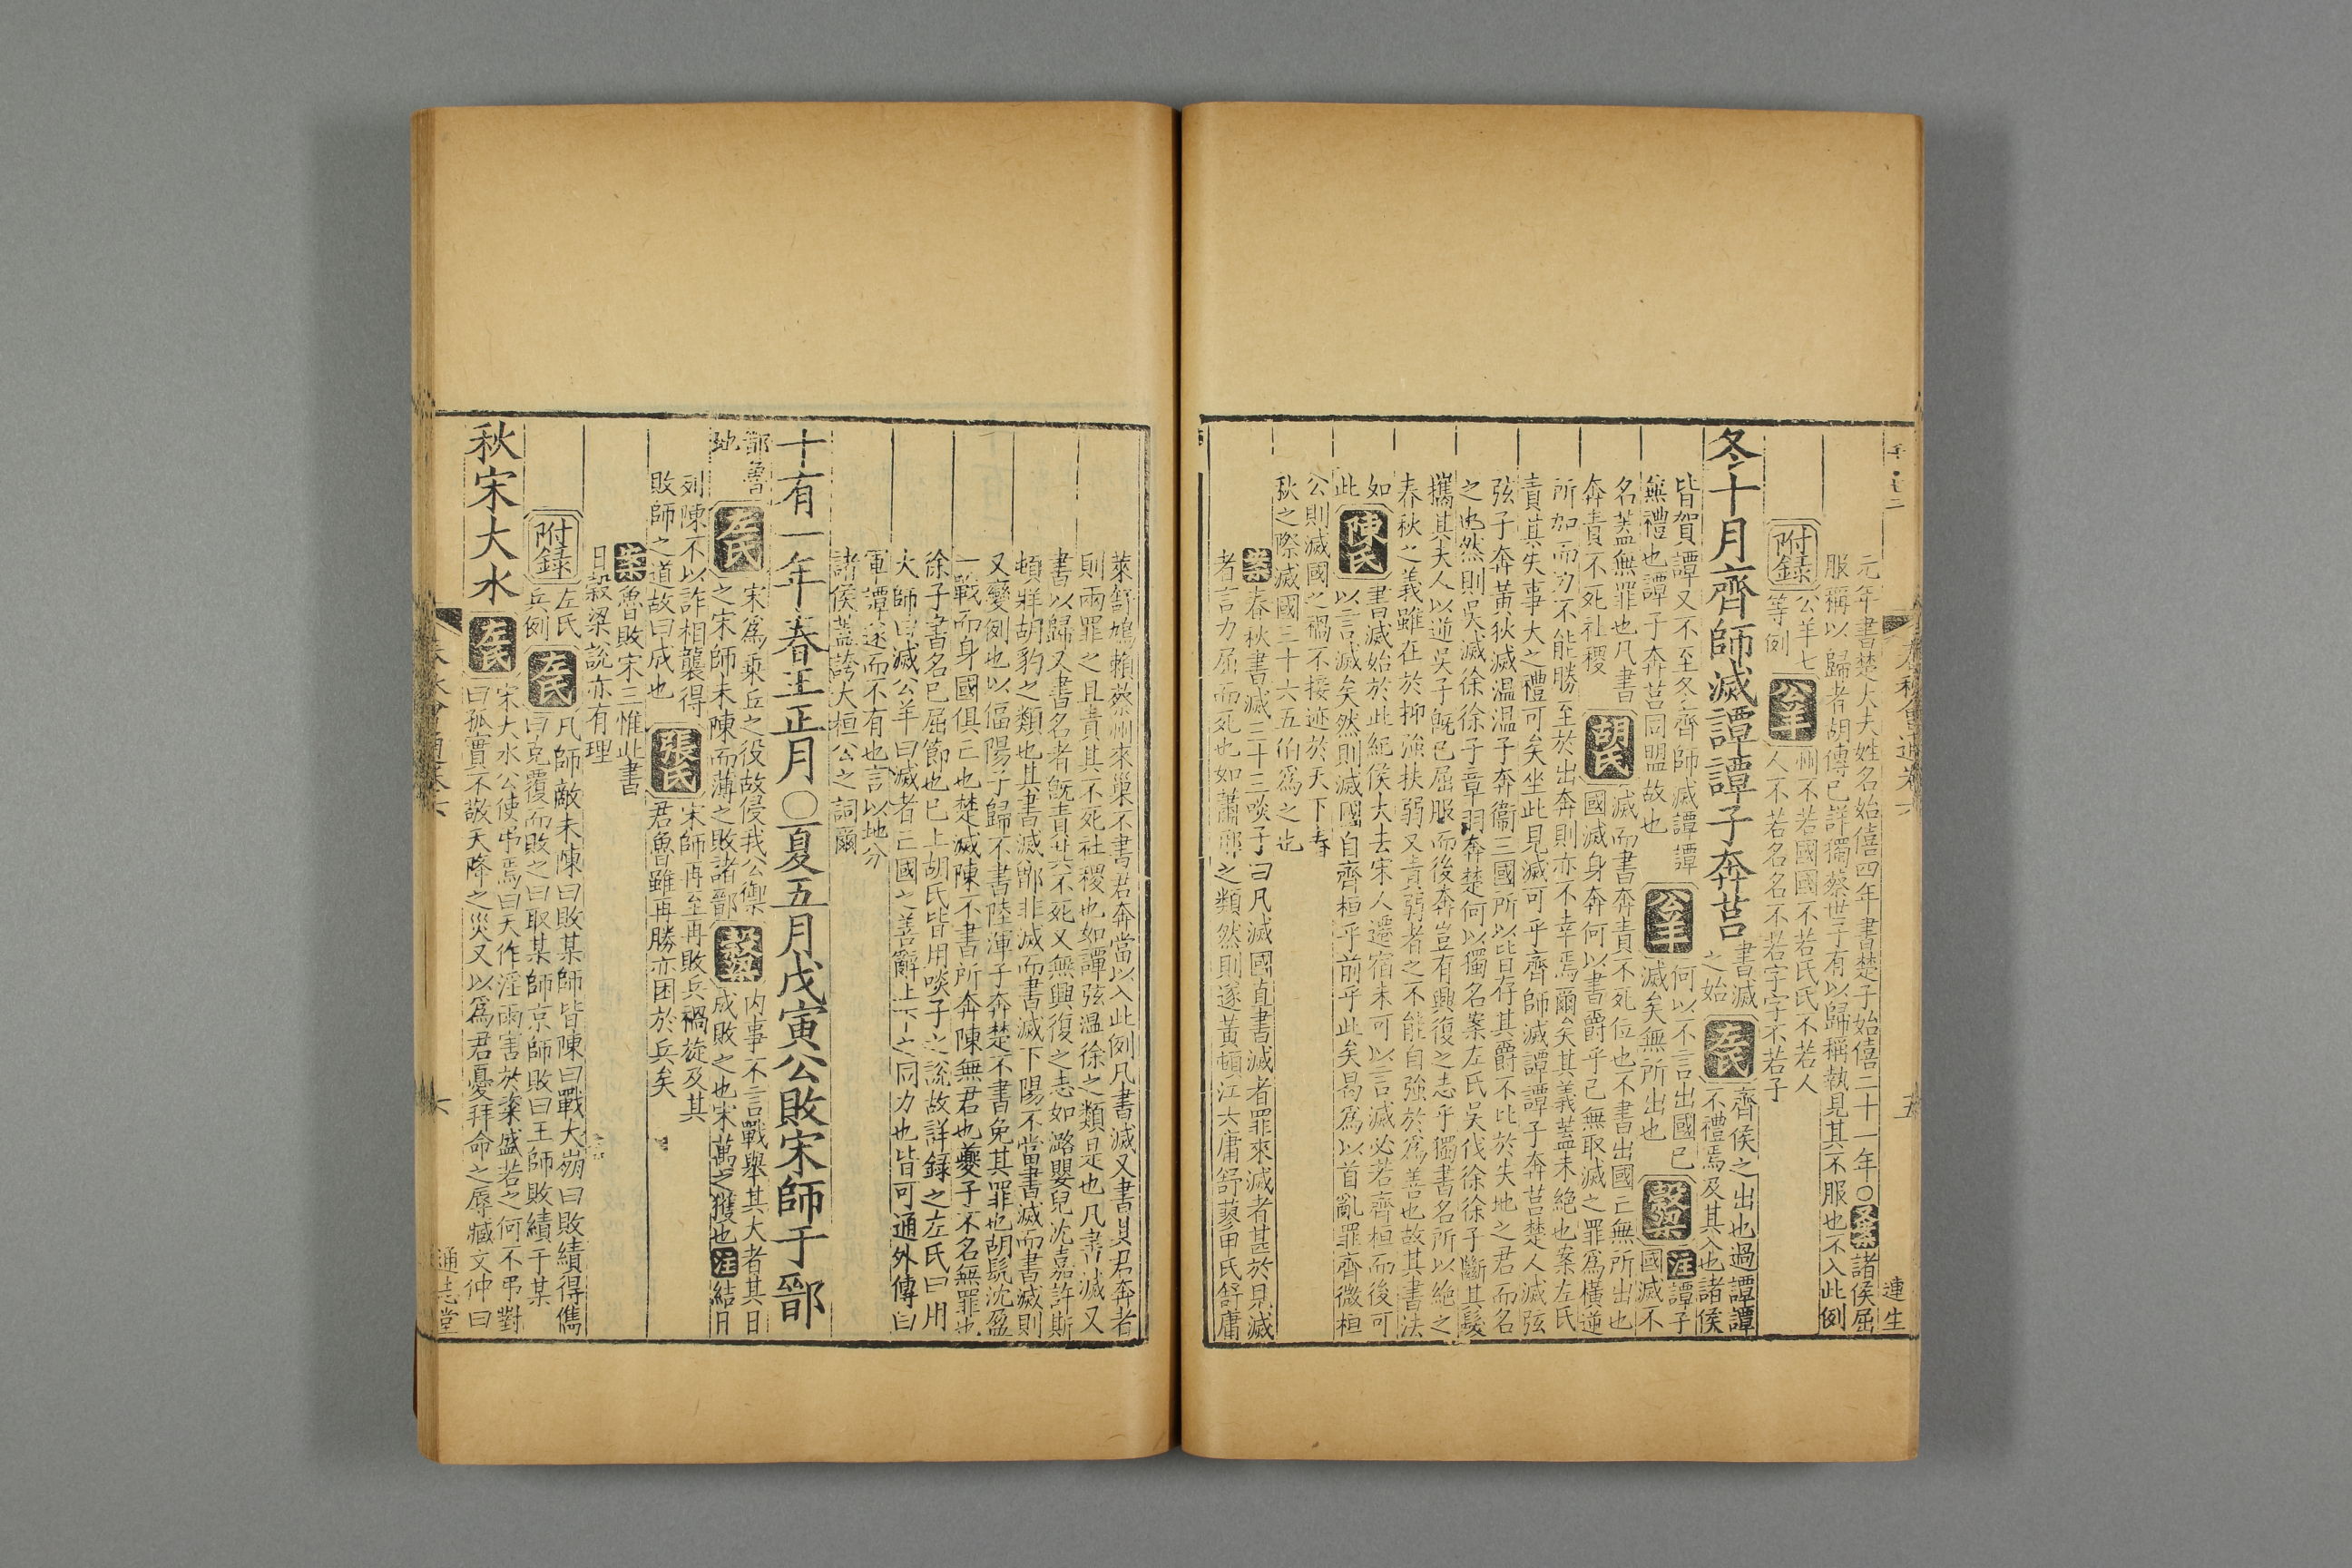 元年書楚大夫姓名始僖四年書楚子始僖二十一年○又案諸侯屈
服稱以歸者胡傳已詳獨蔡世子有以歸稱執見其不服也不入此例
附録
公羊七
等例
公羊
州不若國國不若氏氏不若人
人不若名名不若字字不若子
冬十月齊師滅譚譚子奔莒
書滅
之始
左氏
齊侯之出也過譚譚
不禮焉及其入也諸侯
皆賀譚又不至冬齊師滅譚譚
無禮也譚子奔莒同盟故也
公羊
何以不言出國已
滅矣無所出也
穀梁
注
譚子
國滅不
名蓋無罪也凡書
奔責不死社稷
胡氏
滅而書奔責不死位也不書出國亡無所出也
國滅身奔何以書爵乎已無取滅之罪爲橫逆
所加而力不能勝至於出奔則亦不幸焉爾矣其義蓋未絶也案左氏
責其失事大之禮可矣坐此見滅可乎齊師滅譚譚子奔莒楚人滅弦
弦子奔黃狄滅温温子奔衞三國所以皆存其爵不比於失地之君而名
之也然則吳滅徐徐子章羽奔楚何以獨名案左氏吳伐徐徐子斷其髮
攜其夫人以逆吳子旣已屈服而後奔豈有興復之志乎獨書名所以絶之
春秋之義雖在於抑強扶弱又責弱者之不能自強於爲善也故其書法
如
此
陳氏
書滅始於此紀侯大去宋人遷宿未可以言滅必若齊桓而後可
以言滅矣然則滅國自齊桓乎前乎此矣曷爲以首亂罪齊微桓
公則滅國之禍不接迹於天下春
秋之際滅國三十六五伯爲之也
案
春秋書滅三十三啖子曰凡滅國直書滅者罪來滅者甚於見滅
者言力屈而死也如蕭䣙之類然則遂黃頓江六庸舒蓼甲氏舒庸
萊舒鳩賴蔡州來巢不書君奔當以入此例凡書滅又書其君奔者
則兩罪之且責其不死社稷也如譚弦温徐之類是也凡書滅又
書以歸又書名者旣責其不死又無興復之志如潞嬰兒沈嘉許斯
頓牂胡豹之類也其書滅鄫非滅而書滅下陽不當書滅而書滅則
又變例也以偪陽子歸不書陸渾子奔楚不書免其罪也胡髡沈盈
一戰而身國俱亡也楚滅陳不書所奔陳無君也夔子不名無罪也
徐子書名已屈節也已上胡氏皆用啖子之說故詳録之左氏曰用
大師曰滅公羊曰滅者亡國之善辭上下之同力也皆可通外傳曰
軍譚遂而不有也言以地分
諸侯蓋誇大桓公之詞爾
十有一年春王正月○夏五月戊寅公敗宋師于鄑
鄑魯
地
左氏
宋爲乘丘之役故侵我公禦
之宋師未陳而薄之敗諸鄑
穀梁
内事不言戰舉其大者其日
成敗之也宋萬之獲也
注
結日
列陳不以詐相襲得
敗師之道故曰成也
張氏
宋師再至再敗兵禍旋及其
君魯雖再勝亦困於兵矣
案
魯敗宋三惟此書
日穀梁說亦有理
附録
左氏
兵例
左氏
凡師敵未陳曰敗某師皆陳曰戰大崩曰敗績得儁
曰克覆而敗之曰取某師京師敗曰王師敗績于某
秋宋大水
左氏
宋大水公使弔焉曰天作淫雨害於粢盛若之何不弔對
曰孤實不敬天降之災又以爲君憂拜命之辱臧文仲曰
通志堂
連生